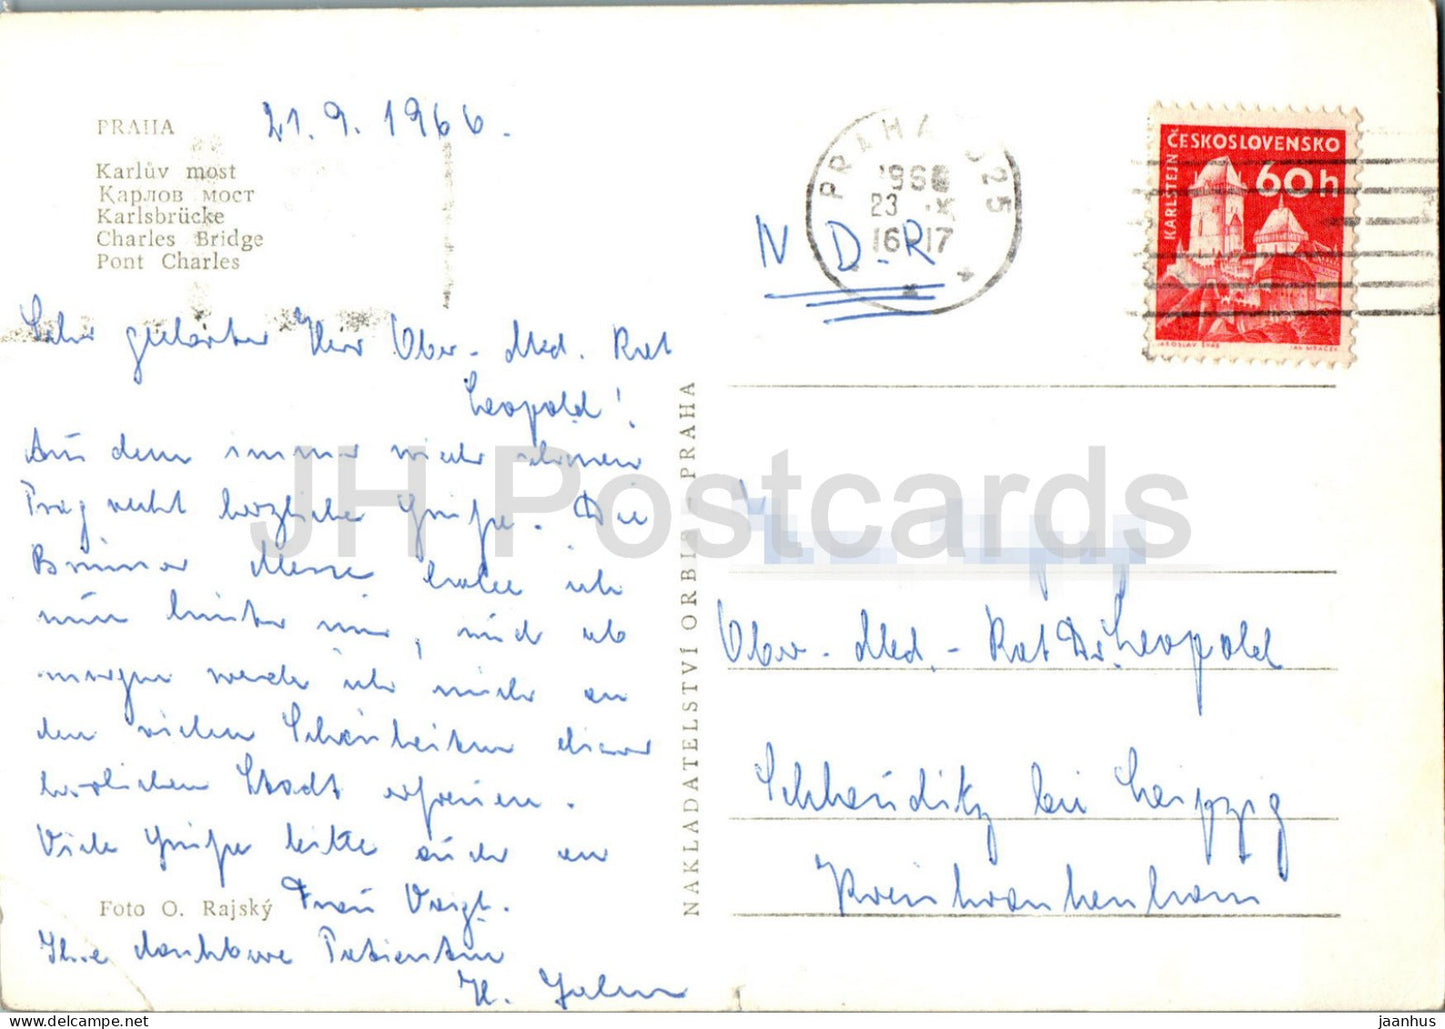 PRAHA
21.9.1966.
Karlův most
Карлов мост
Karlsbrücke
Charles Bridge
Pont Charles
Sehr geehrter Herr Ober-Med. Rat
Leopold!
Aus dem immer wieder schönen
Prag recht herzliche Grüße. Die
Brünner Messe habe ich
nun hinter mir, und ab
morgen werde ich mich an
den vielen Schönheiten dieser
herrlichen Stadt erfreuen.
Viele Grüße bitte auch an
Frau Voigt.
Foto O. Rajský
Ihre dankbare Patientin
H.
NAKLADATELSTVÍ ORBIS PRAHA
PRAHA 025
1966
23
16-17
N D.R
ČESKOSLOVENSKO
60h
KARLŠTEJN
JAROSLAV ŠVÁB
JAN MRÁČEK
Ober-Med.-Rat Dr. Leopold
Schkeuditz bei Leipzig
Kreiskrankenhaus
JH Postcards
jaanhus
www.delcampe.net